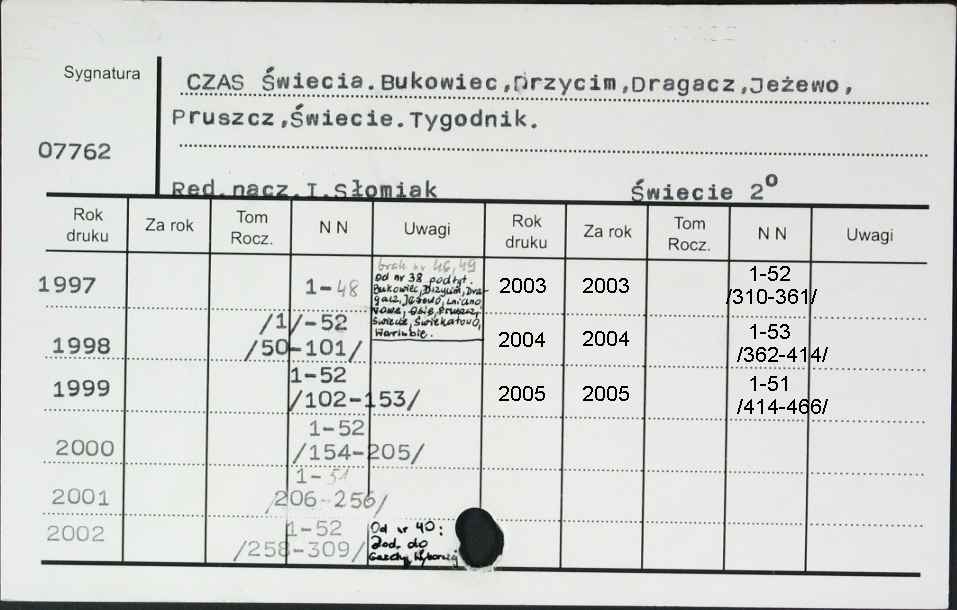 Sygnatura
CZAS Świecia.Bukowiec,Drzycim,Dragacz,Jeżewo,
Pruszcz,Świecie.Tygodnik.
07762
Red.nacz.I.Słomiak Świecie 2°
Rok druku Za rok Tom Rocz. N N Uwagi Rok druku Za rok Tom Rocz. N N Uwagi
1997 1-48
brak nr 46,49
Od nr 38 podtyt.
Bukowiec, Drzycim, Dra-
gacz, Jeżewo, Lniano
Nowe, Osie, Pruszcz,
Świecie, Świekatowo,
Warlubie.
2003 2003 1-52
/310-361/
1998 /1/-52
/50-101/
2004 2004 1-53
/362-414/
1999 1-52
/102-153/
2005 2005 1-51
/414-466/
2000 1-52
/154-205/
2001 1-51
/206-256/
2002 1-52
/258-309/
Od nr 40:
Dod. do
Gazety Wyborczej